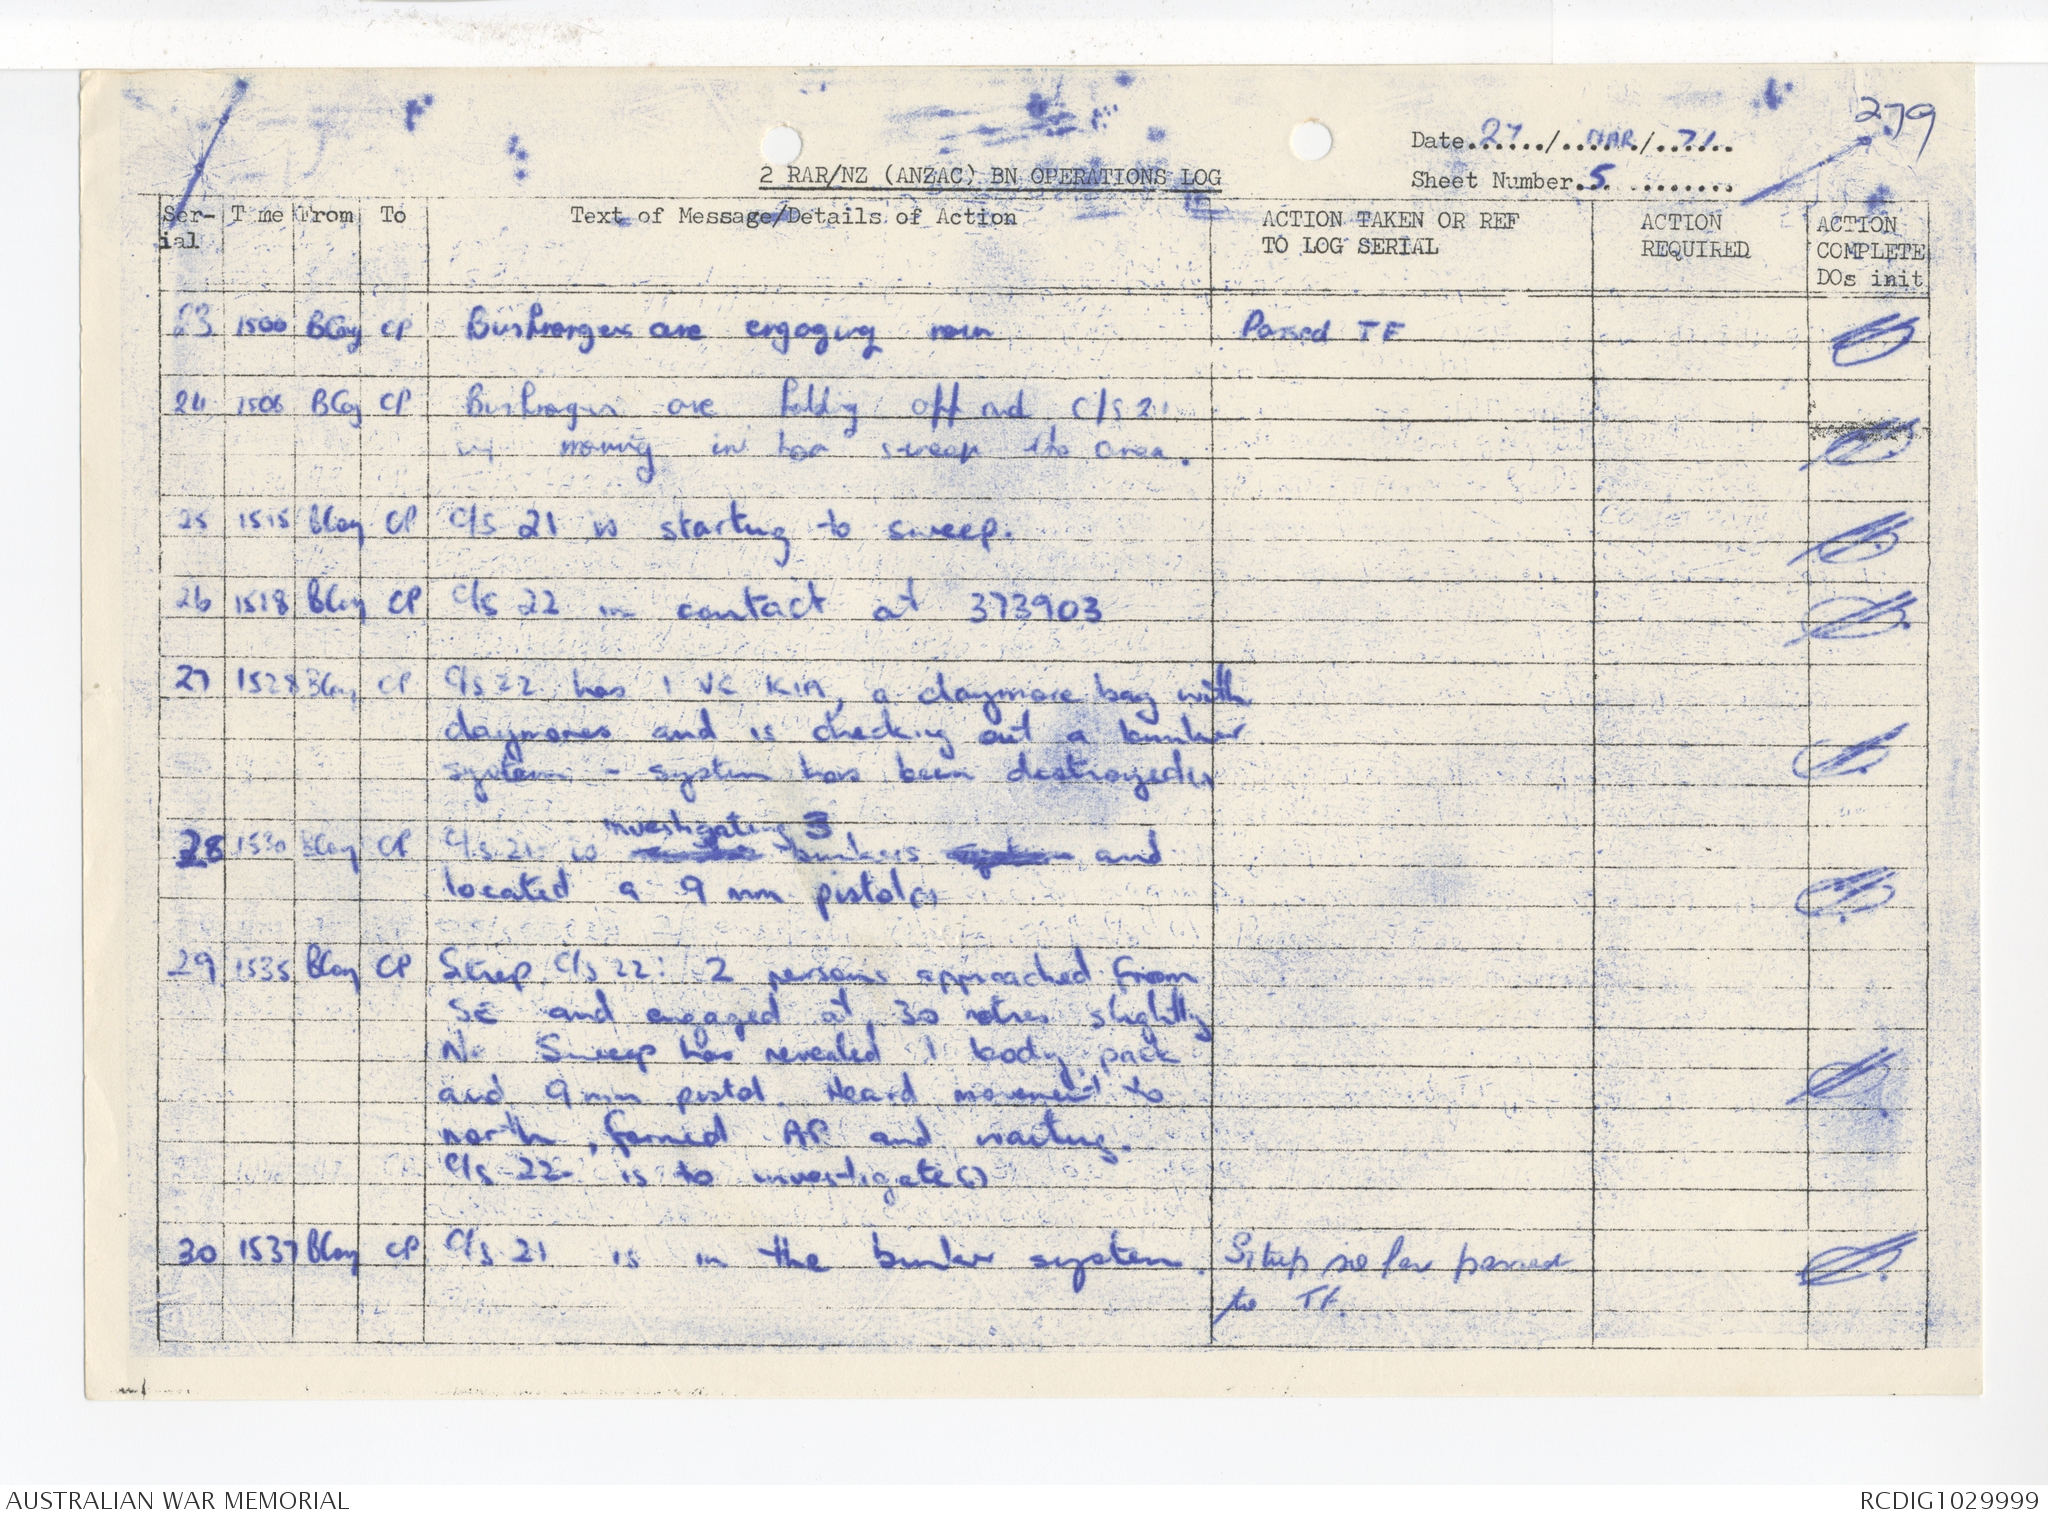 279
Date 27/MAR/71
2 RAR/NZ (ANZAC) BN OPERATIONS LOG
Sheet Number 5
Ser-ial Time From To Text of Message/Details of Action ACTION TAKEN OR REF TO LOG SERIAL ACTION REQUIRED ACTION COMPLETE DOs init
23 1500 BCoy CP Bushrangers are engaging now Passed TF
24 1506 BCoy CP Bushrangers are holding off and C/S 21
moving in to sweep the area.
25 1515 BCoy CP C/S 21 is starting to sweep.
26 1518 BCoy CP C/S 22 in contact at 373903
27 1528 BCoy CP C/S 22 has 1 VC KIA, a claymore bag with
claymores and is checking out a bunker
system - system has been destroyed(.)
investigating 3
28 1530 BCoy CP C/S 21 is bunkers and
located a 9 mm pistol(.)
29 1535 BCoy CP Sitrep C/S 22: 2 persons approached from
SE and engaged at 30 metres slightly
N. Sweep has revealed 1 body, pack
and 9 mm pistol. Heard movement to
north, formed AP and waiting.
C/S 22 is to investigate(.)
30 1537 BCoy CP C/S 21 is in the bunker system. Sitrep so far passed
to TF.
AUSTRALIAN WAR MEMORIAL
RCDIG1029999